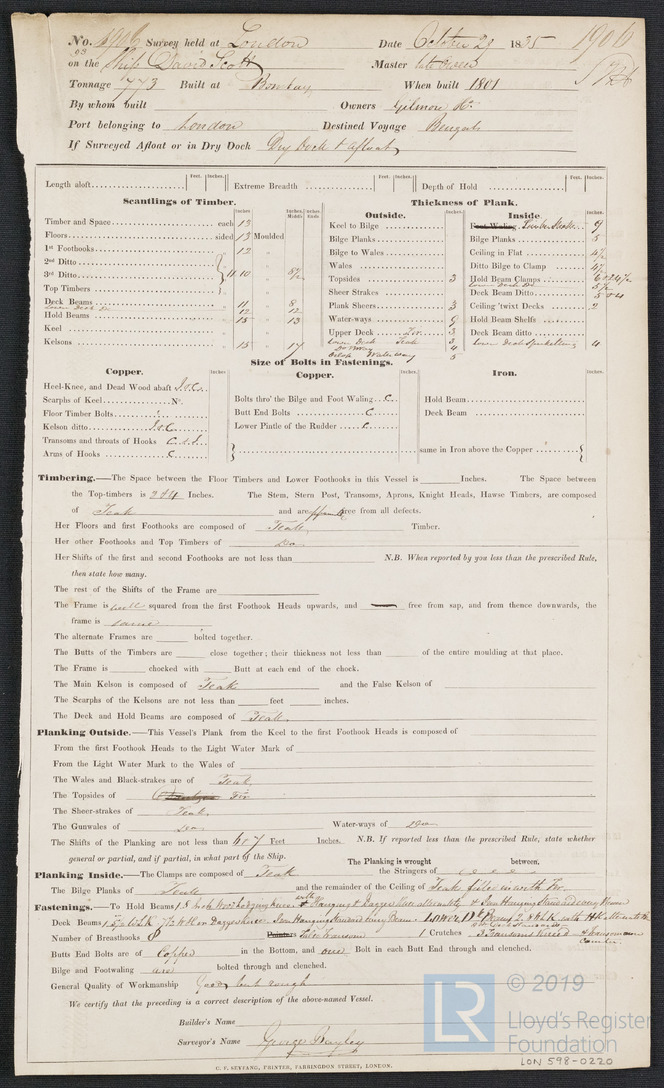 No. 1906 Survey held at London Date October 29 1835 1906
on the Ship David Scott Master
Tonnage 773 Built at Bombay When built 1801
By whom built Owners Gilmore &c.
Port belonging to London Destined Voyage Bengal
If Surveyed Afloat or in Dry Dock Dry Dock & afloat
Feet. Inches. Feet. Inches. Feet. Inches.
Length aloft Extreme Breadth Depth of Hold
Scantlings of Timber.
Timber and Space each 13
Floors sided 13 Moulded
1st Foothooks 12
2nd Ditto
3rd Ditto
Top Timbers
Deck Beams 11 8
Hold Beams 15 13
Keel
Kelsons 15 17
Thickness of Plank.
Outside. Inside.
Keel to Bilge Timber Strake 9
Bilge Planks Bilge Planks 5
Bilge to Wales Ceiling in Flat
Wales Ditto Bilge to Clamp
Topsides 3 Hold Beam Clamps
Sheer Strakes Deck Beam Ditto
Plank Sheers 3 Ceiling 'twixt Decks 2
Water-ways 9 Hold Beam Shelfs
Upper Deck Fir 3 Deck Beam ditto
Lower Deck Teak 3 Lower Deck Spirketting 4
Size of Bolts in Fastenings.
Copper. Copper. Iron.
Heel-Knee, and Dead Wood abaft I & C
Scarphs of Keel No
Floor Timber Bolts
Kelson ditto I & C
Transoms and throats of Hooks C & I
Arms of Hooks C
Bolts thro' the Bilge and Foot Waling C
Butt End Bolts C
Lower Pintle of the Rudder C
Hold Beam
Deck Beam
same in Iron above the Copper
Timbering.—The Space between the Floor Timbers and Lower Foothooks in this Vessel is Inches. The Space between
the Top-timbers is 2 & 4 Inches. The Stem, Stern Post, Transoms, Aprons, Knight Heads, Hawse Timbers, are composed
of Teak and are apparently free from all defects.
Her Floors and first Foothooks are composed of Teak Timber.
Her other Foothooks and Top Timbers of Do
Her Shifts of the first and second Foothooks are not less than N.B. When reported by you less than the prescribed Rule,
then state how many.
The rest of the Shifts of the Frame are
The Frame is well squared from the first Foothook Heads upwards, and free from sap, and from thence downwards, the
frame is same
The alternate Frames are bolted together.
The Butts of the Timbers are close together; their thickness not less than of the entire moulding at that place.
The Frame is chocked with Butt at each end of the chock.
The Main Kelson is composed of Teak and the False Kelson of
The Scarphs of the Kelsons are not less than feet inches.
The Deck and Hold Beams are composed of Teak
Planking Outside.—This Vessel's Plank from the Keel to the first Foothook Heads is composed of
From the first Foothook Heads to the Light Water Mark of
From the Light Water Mark to the Wales of
The Wales and Black-strakes are of Teak
The Topsides of Fir
The Sheer-strakes of Teak
The Gunwales of Do Water-ways of Do
The Shifts of the Planking are not less than 6 & 7 Feet Inches. N.B. If reported less than the prescribed Rule, state whether
general or partial, and if partial, in what part of the Ship. The Planking is wrought between.
Planking Inside.—The Clamps are composed of Teak the Stringers of
The Bilge Planks of Teak and the remainder of the Ceiling of Teak filled in with Fir
Fastenings.—To Hold Beams
Deck Beams
Number of Breasthooks 8 Pointers 1 Crutches
Butts End Bolts are of Copper in the Bottom, and one Bolt in each Butt End through and clenched.
Bilge and Footwaling are bolted through and clenched.
General Quality of Workmanship Good but rough
We certify that the preceding is a correct description of the above-named Vessel.
Builder's Name
Surveyor's Name George Bayley
C. F. SEYFANG, PRINTER, FARRINGDON STREET, LONDON.
LR © 2019
Lloyd's Register
Foundation
LON 598-0220